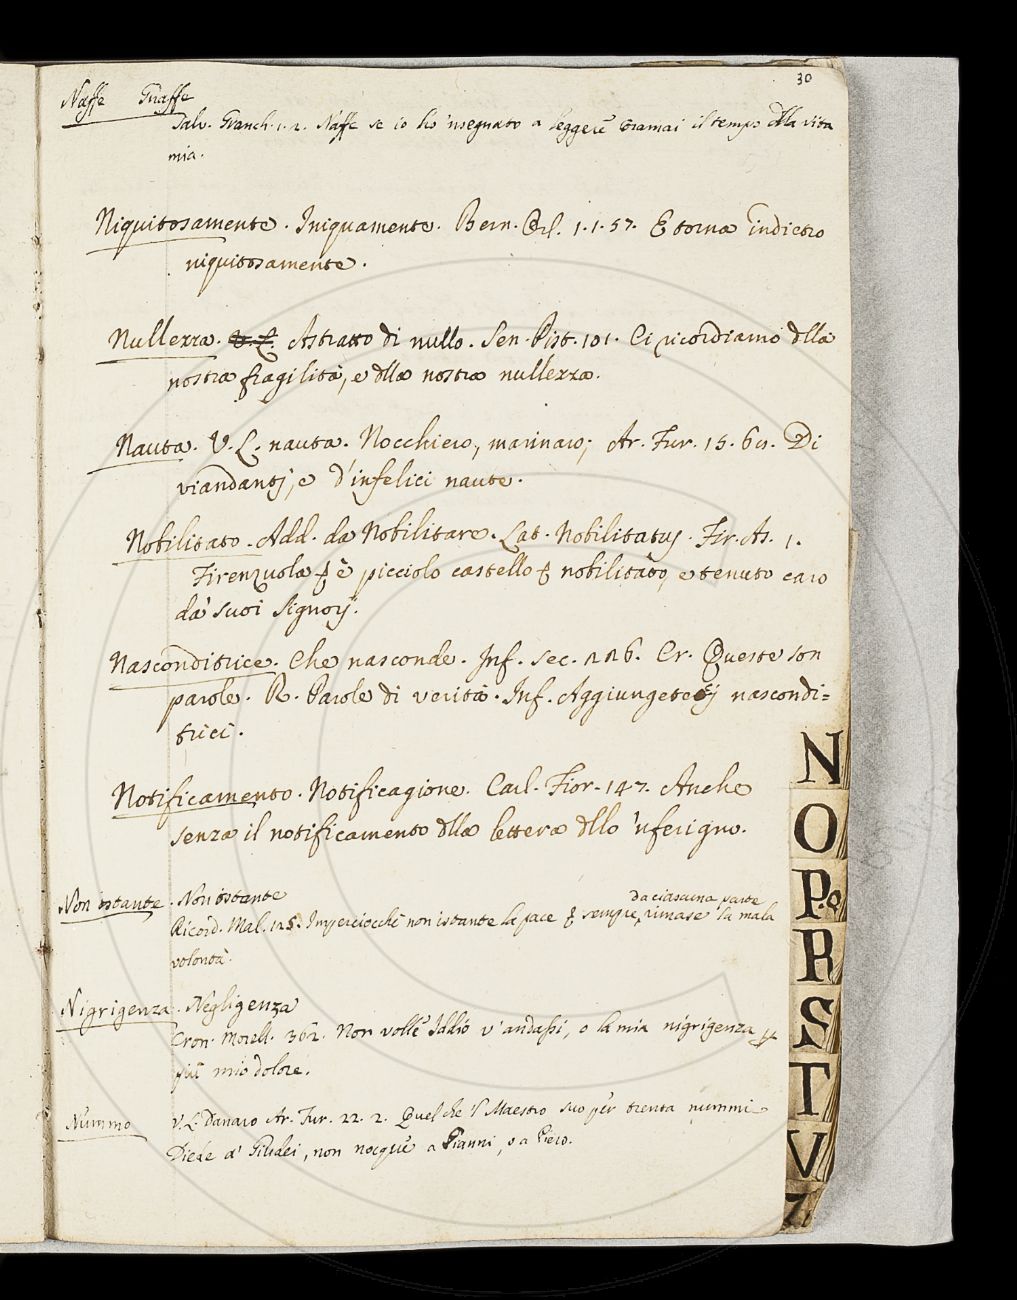 30
Naffe Gnaffe
Salv. Granch. 1. 2. Naffe se io ho 'nsegnato a leggere oramai il tempo dlla vita
mia.
Niquitosamente. Iniquamente. Bern. Orl. 1. 1. 57. E torna indietro
niquitosamente.
Nullezza. V. L. Astratto di nullo. Sen. Pist. 101. Ci ricordiamo dlla
nostra fragilità, e dlla nostra nullezza.
Nauta. V. L. nauta. Nocchiero, marinaro; Ar. Fur. 15. Di
viandantj, e d'infelici naute.
Nobilitato. Add. da Nobilitare. Lat. Nobilitatus. Fir. As. 1.
Firenzuola è picciolo castello nobilitato, e tenuto caro
da' suoi Signorj.
Nasconditrice. Che nasconde. Inf. sec. 226. Cr. Queste son
parole. R. Parole di verità. Inf. Aggiungete nascondi=
trici.
Notificamento. Notificagione. Carl. Fior. 147. Anche
senza il notificamento dlla lettera dllo 'nferigno.
Non istante. Non ostante
da ciascuna parte
Ricord. Mal. 125. Imperciocchè non istante la pace sempre, rimase la mala
volontà.
Nigrigenza. Negligenza
Cron. Morell. 362. Non volle Iddio v'andassi, o la mia nigrigenza
più mio dolore.
Nummo V. L. Danaro Ar. Fur. 22. 2. Quel che 'l Maestro suo per trenta nummi
Diede a' Giudei, non nocque a Gianni, o a Piero.
N
O
P.Q
R
S
T
V
Z